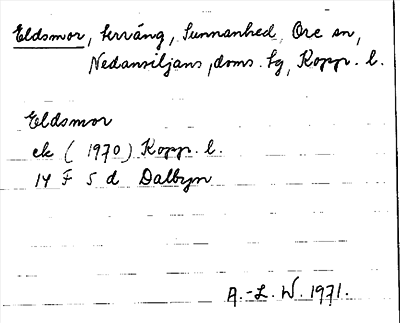 Eldsmor, terräng, Sunnanhed, Ore sn,
Nedansiljans, doms. tg, Kopp. l.
Eldsmor
ek (1970) Kopp. l.
14 F 5 d Dalbyn
A.-L. W. 1971.